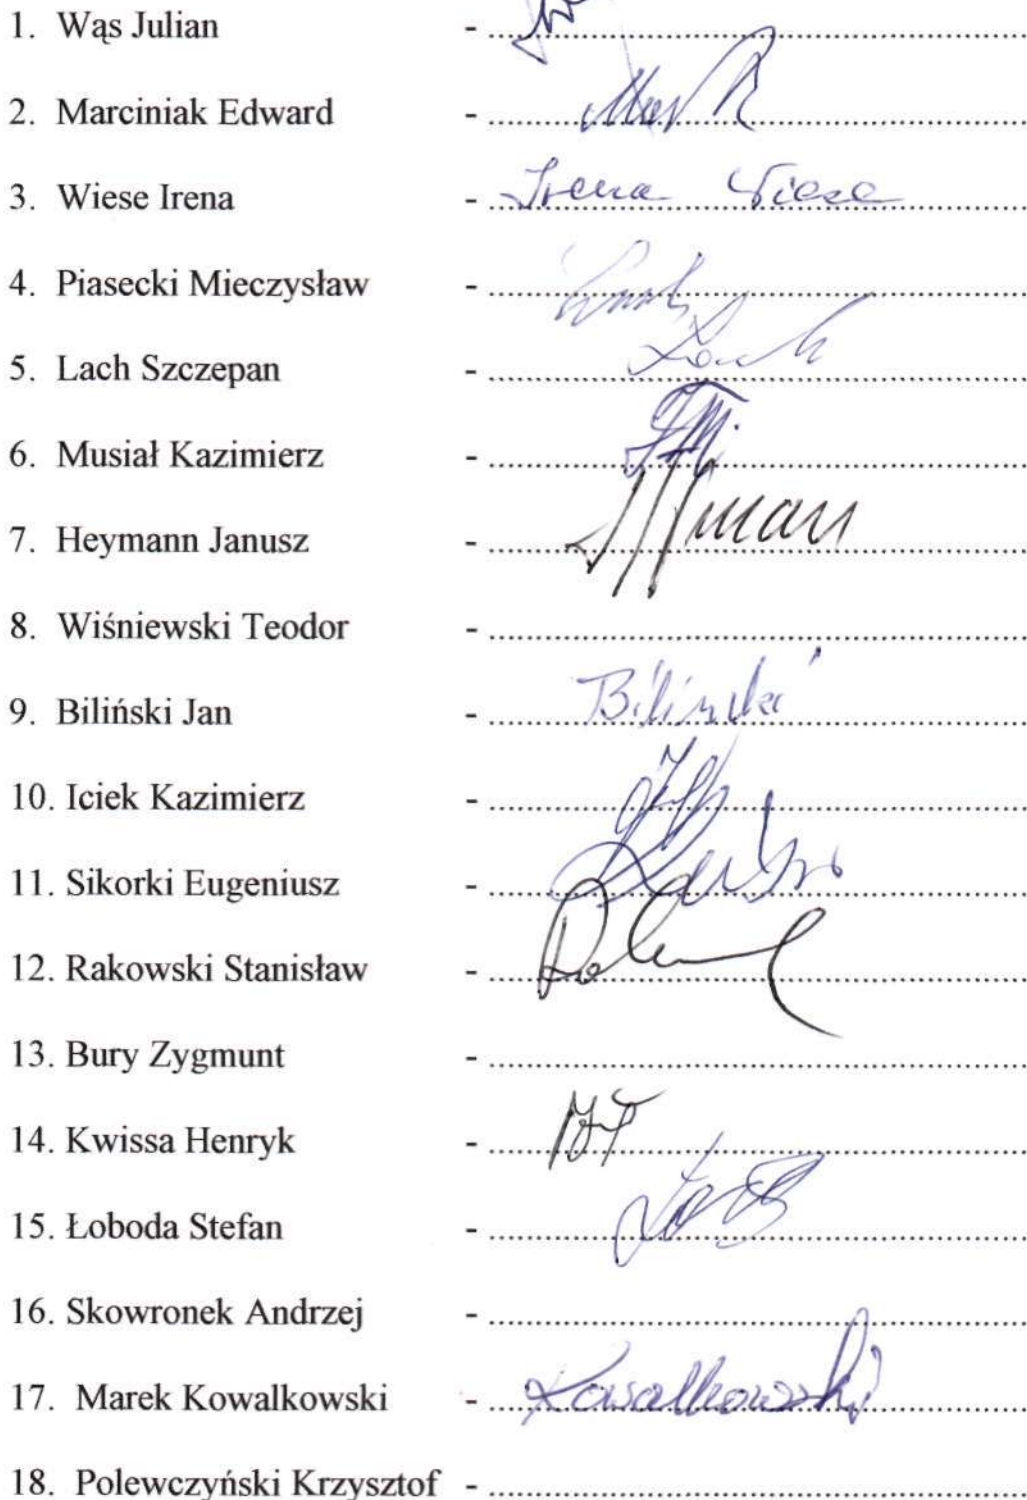 1. Wąs Julian - ....................
2. Marciniak Edward - ....................
3. Wiese Irena - .................... Irena Wiese
4. Piasecki Mieczysław - ....................
5. Lach Szczepan - .................... Lach
6. Musiał Kazimierz - ....................
7. Heymann Janusz - ....................
8. Wiśniewski Teodor - ....................
9. Biliński Jan - .................... Biliński
10. Iciek Kazimierz - ....................
11. Sikorki Eugeniusz - ....................
12. Rakowski Stanisław - ....................
13. Bury Zygmunt - ....................
14. Kwissa Henryk - ....................
15. Łoboda Stefan - ....................
16. Skowronek Andrzej - ....................
17. Marek Kowalkowski - .................... Kowalkowski
18. Polewczyński Krzysztof - ....................